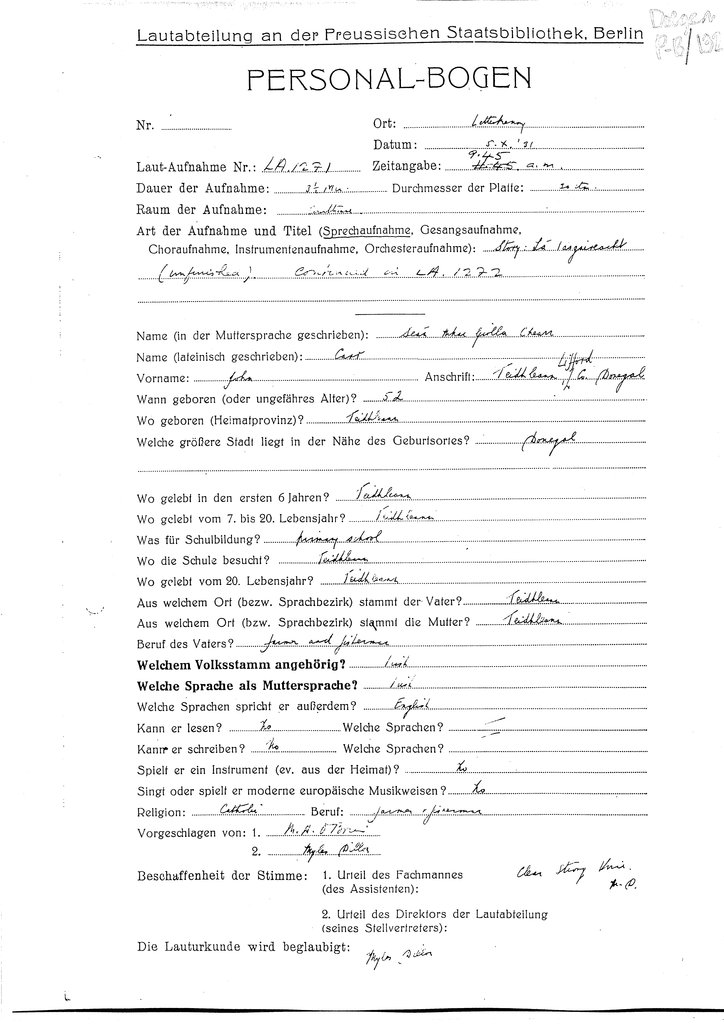 Doegen
Lautabteilung an der Preussischen Staatsbibliothek, Berlin
PERSONAL-BOGEN
Nr.
Ort: Letterkenny
Datum: 5.X.'31
9.45
Laut-Aufnahme Nr.: LA.1271 Zeitangabe: a.m.
Dauer der Aufnahme: Durchmesser der Platte: 20 cm
Raum der Aufnahme:
Art der Aufnahme und Titel (Sprechaufnahme, Gesangsaufnahme,
Choraufnahme, Instrumentenaufnahme, Orchesteraufnahme): Story:
(unfinished). Continued in LA. 1272
Name (in der Muttersprache geschrieben):
Name (lateinisch geschrieben): Carr
Lifford
Vorname: John Anschrift: Teidhleann, Co. Donegal
Wann geboren (oder ungefähres Alter)? 52
Wo geboren (Heimatprovinz)? Teidhleann
Welche größere Stadt liegt in der Nähe des Geburtsortes? Donegal
Wo gelebt in den ersten 6 Jahren? Teidhleann
Wo gelebt vom 7. bis 20. Lebensjahr? Teidhleann
Was für Schulbildung? primary school
Wo die Schule besucht? Teidhleann
Wo gelebt vom 20. Lebensjahr? Teidhleann
Aus welchem Ort (bezw. Sprachbezirk) stammt der Vater? Teidhleann
Aus welchem Ort (bezw. Sprachbezirk) stammt die Mutter? Teidhleann
Beruf des Vaters? farmer and fisherman
Welchem Volksstamm angehörig? Irish
Welche Sprache als Muttersprache? Irish
Welche Sprachen spricht er außerdem? English
Kann er lesen? No Welche Sprachen?
Kann er schreiben? No Welche Sprachen?
Spielt er ein Instrument (ev. aus der Heimat)? No
Singt oder spielt er moderne europäische Musikweisen? No
Religion: Catholic Beruf: farmer + fisherman
Vorgeschlagen von: 1. M. A. O'Brien
2. Myles Dillon
Beschaffenheit der Stimme: 1. Urteil des Fachmannes Clear strong voice.
(des Assistenten): M.D.
2. Urteil des Direktors der Lautabteilung
(seines Stellvertreters):
Die Lauturkunde wird beglaubigt: Myles Dillon